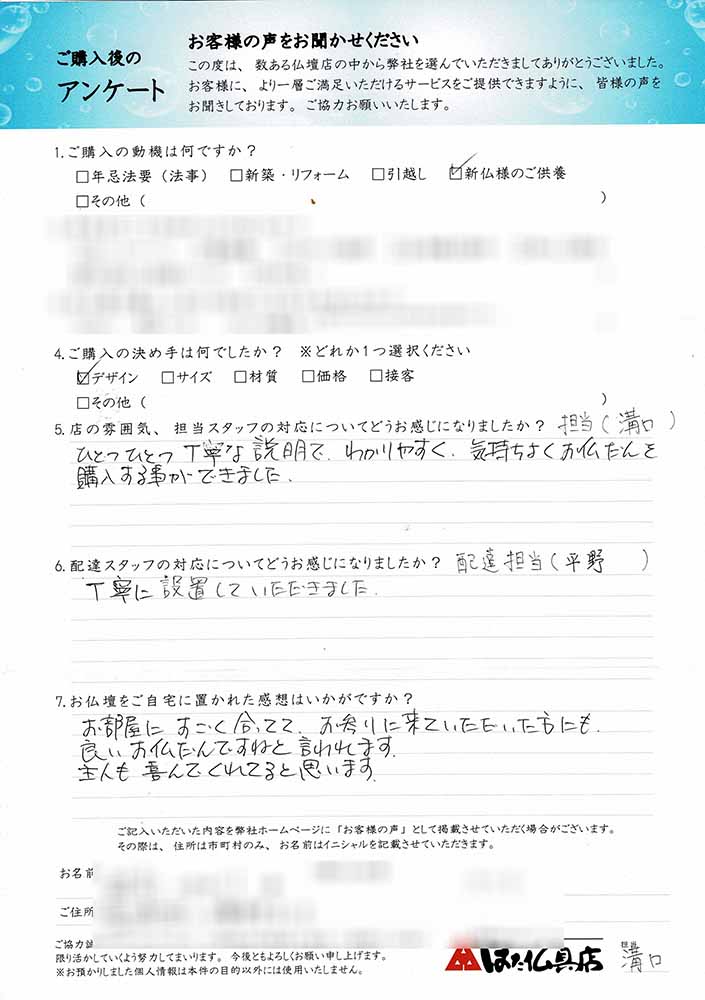 ご購入後の
アンケート
お客様の声をお聞かせください
この度は、数ある仏壇店の中から弊社を選んでいただきましてありがとうございました。
お客様に、より一層ご満足いただけるサービスをご提供できますように、皆様の声を
お聞きしております。ご協力お願いいたします。
1.ご購入の動機は何ですか?
□年忌法要(法事) □新築・リフォーム □引越し ☑新仏様のご供養
□その他( )
4.ご購入の決め手は何でしたか? ※どれか1つ選択ください
☑デザイン □サイズ □材質 □価格 □接客
□その他( )
5.店の雰囲気、担当スタッフの対応についてどうお感じになりましたか? 担当(溝口)
ひとつひとつ丁寧な説明で、わかりやすく、気持ちよくお仏だんを
購入する事ができました.
6.配達スタッフの対応についてどうお感じになりましたか? 配達担当(平野 )
丁寧に設置していただきました.
7.お仏壇をご自宅に置かれた感想はいかがですか?
お部屋にすごく合ってて、お参りに来ていただいた方にも、
良いお仏だんですねと言われます.
主人も喜んでくれてると思います.
ご記入いただいた内容を弊社ホームページに「お客様の声」として掲載させていただく場合がございます。
その際は、住所は市町村のみ、お名前はイニシャルを記載させていただきます。
お名前
ご住所
ご協力
限り活かしていくよう努力してまいります。今後ともよろしくお願い申し上げます。
※お預かりしました個人情報は本件の目的以外には使用いたしません。
はた仏具店
担当 溝口